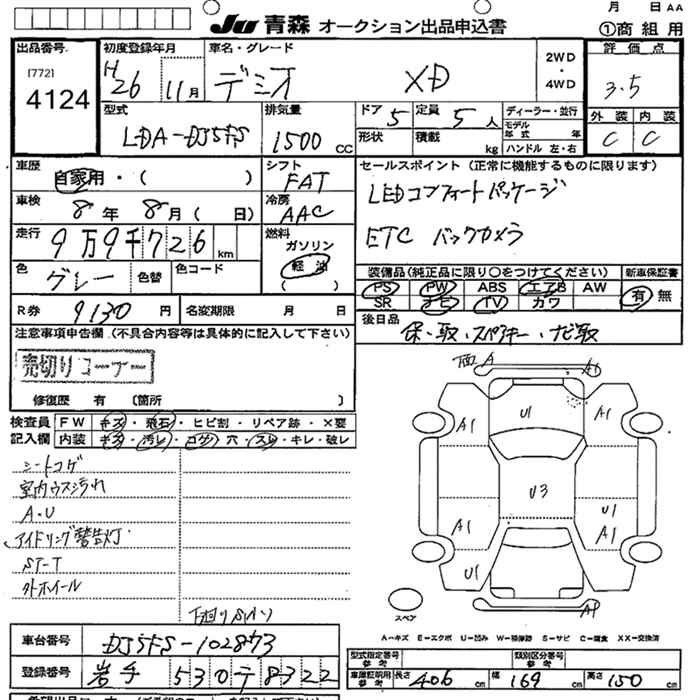 月 日 AA
JU 青森 オークション出品申込書 ①商組用
出品番号 初度登録年月 車名・グレード 2WD・4WD 評価点
[772] H26 11月 デミオ XD 3.5
4124
型式 排気量 ドア 5 定員 5人 ディーラー・並行 外装 内装
LDA-DJ5FS 1500CC 形状 積載 kg モデル年式 年 C C
ハンドル 左・右
車歴 シフト セールスポイント(正常に機能するものに限ります)
自家用・( ) FAT LEDコンフォートパッケージ
車検 8年 8月( 日) 冷房 AAC
走行 9万9千726km 燃料 ガソリン 軽油 ETC バックカメラ
色 グレー 色替 色コード 装備品(純正品に限り○をつけてください) 新車保証書
PS PW ABS エアB AW 有 無
R券 9130円 名変期限 月 日 SR ナビ TV カワ
注意事項申告欄(不具合内容等は具体的に記入して下さい) 後日品 保・取・スペアキー・ナビ取
売切りコーナー
修復歴 有 (箇所 )
検査員記入欄 FW キズ・飛石・ヒビ割・リペア跡・×要
内装 キズ・汚レ・コゲ・穴・スレ・キレ・破レ
シートコゲ
室内ウスヨゴレ
A・U
アイドリング警告灯
ST-T
外ホイール
下廻りS(ハン)
A A1
U1 A1 A1
U3
U1
A1 A1
U1
A1
スペア
A-キズ E-エクボ U-凹み W-補修跡 S-サビ C-腐食 XX-交換済
車台番号 DJ5FS-102873 型式指定番号 参考 類別区分番号 参考
登録番号 岩手 530 テ 8322 車庫証明用参考 長さ 406 cm 幅 169 cm 高さ 150 cm